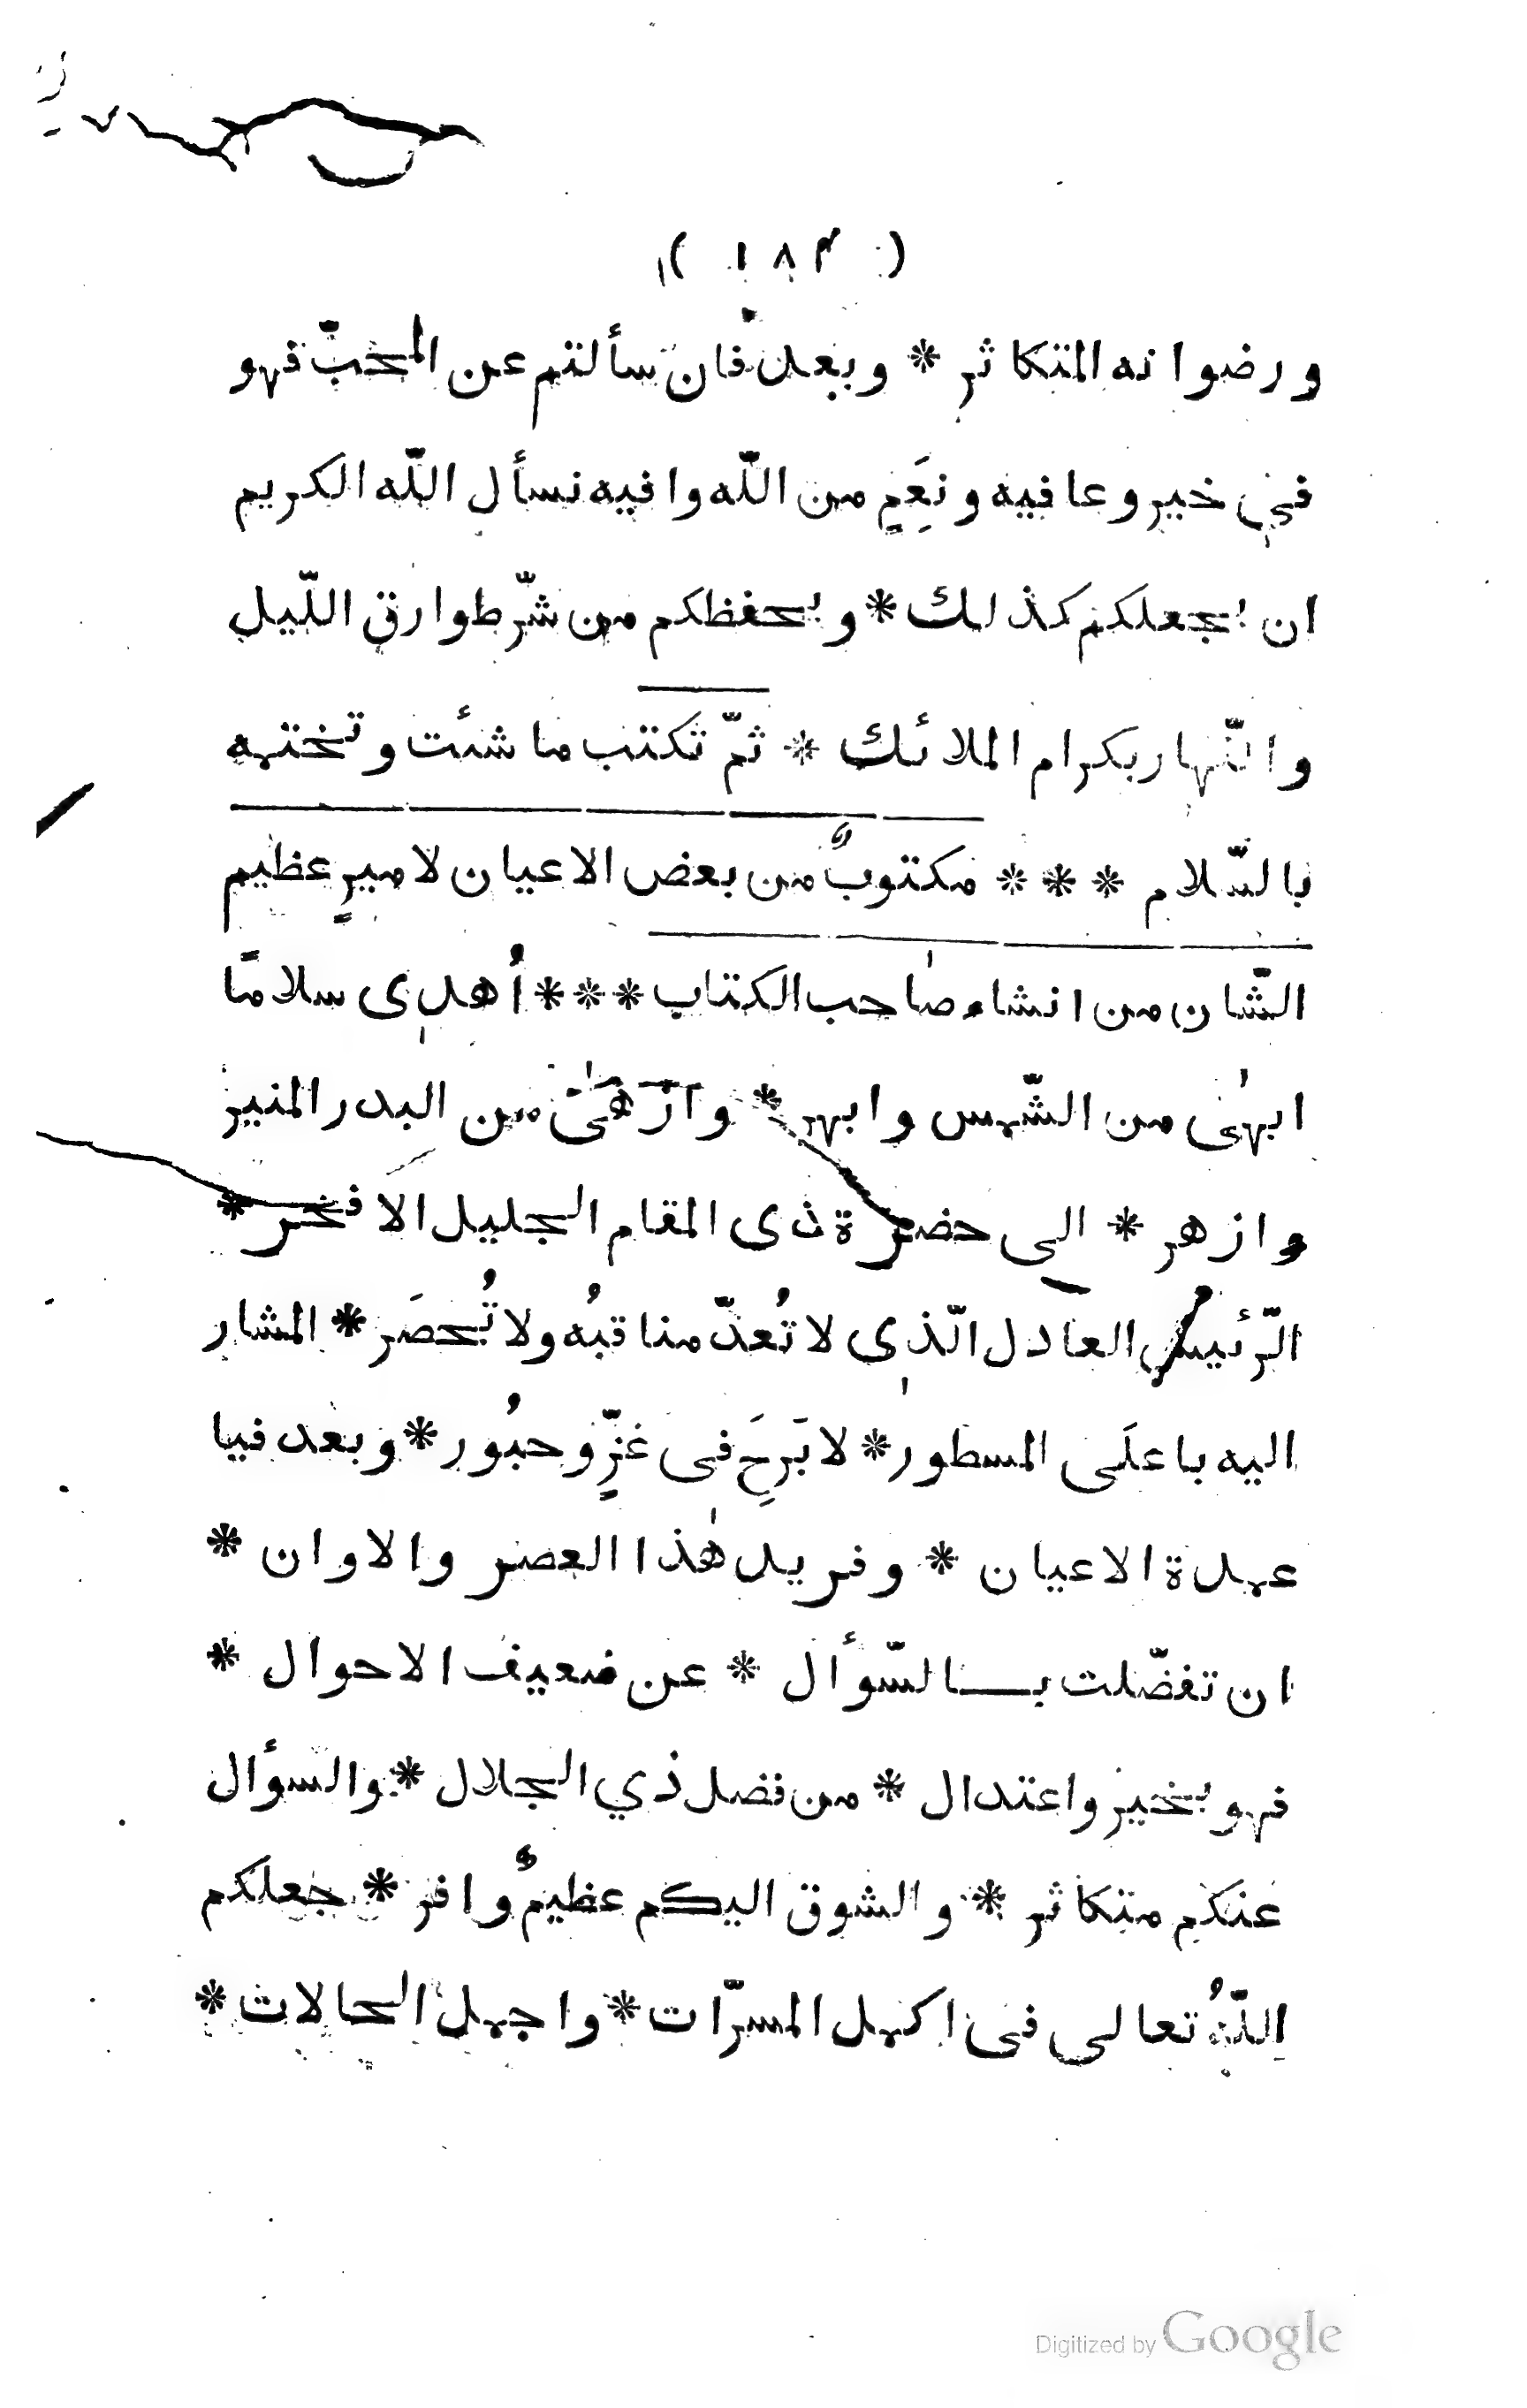 ( ١٨٣ )
ورضوانه المتكاثر * وبعد فان سألتم عن المحبّ فهو
فى خير وعافيه ونِعَمٍ من اللّه وافيه نسأل اللّه الكريم
ان يجعلكم كذلك * ويحفظكم من شرّ طوارق اللّيل
والنّهار بكرام الملائك * ثمّ تكتب ما شئت وتختمه
بالسّلام * * * مكتوبٌ من بعض الاعيان لاميرٍ عظيم
الشّان من انشاء صاحب الكتاب * * * أُهدى سلامًا
ابهٰى من الشّمس وابهر * وازهىٰ من البدر المنير
وازهر * الى حضرة ذى المقام الجليل الافخر *
الرّئيس العادل الّذى لا تُعدّ مناقبُه ولا تُحصَر * المشار
اليه باعلَى المسطور * لا بَرِحَ فى عزٍّ وحبُور * وبعد فيا
عمدة الاعيان * وفريد هٰذا العصر والاوان *
ان تفضّلت بالسّوأل * عن ضعيف الاحوال *
فهو بخير واعتدال * من فضل ذي الجلال * والسوأل
عنكم متكاثر * والشوق اليكم عظيمٌ وافر * جعلكم
اللّهُ تعالى فى اكمل المسرّات * واجمل الحالات *
Digitized by Google